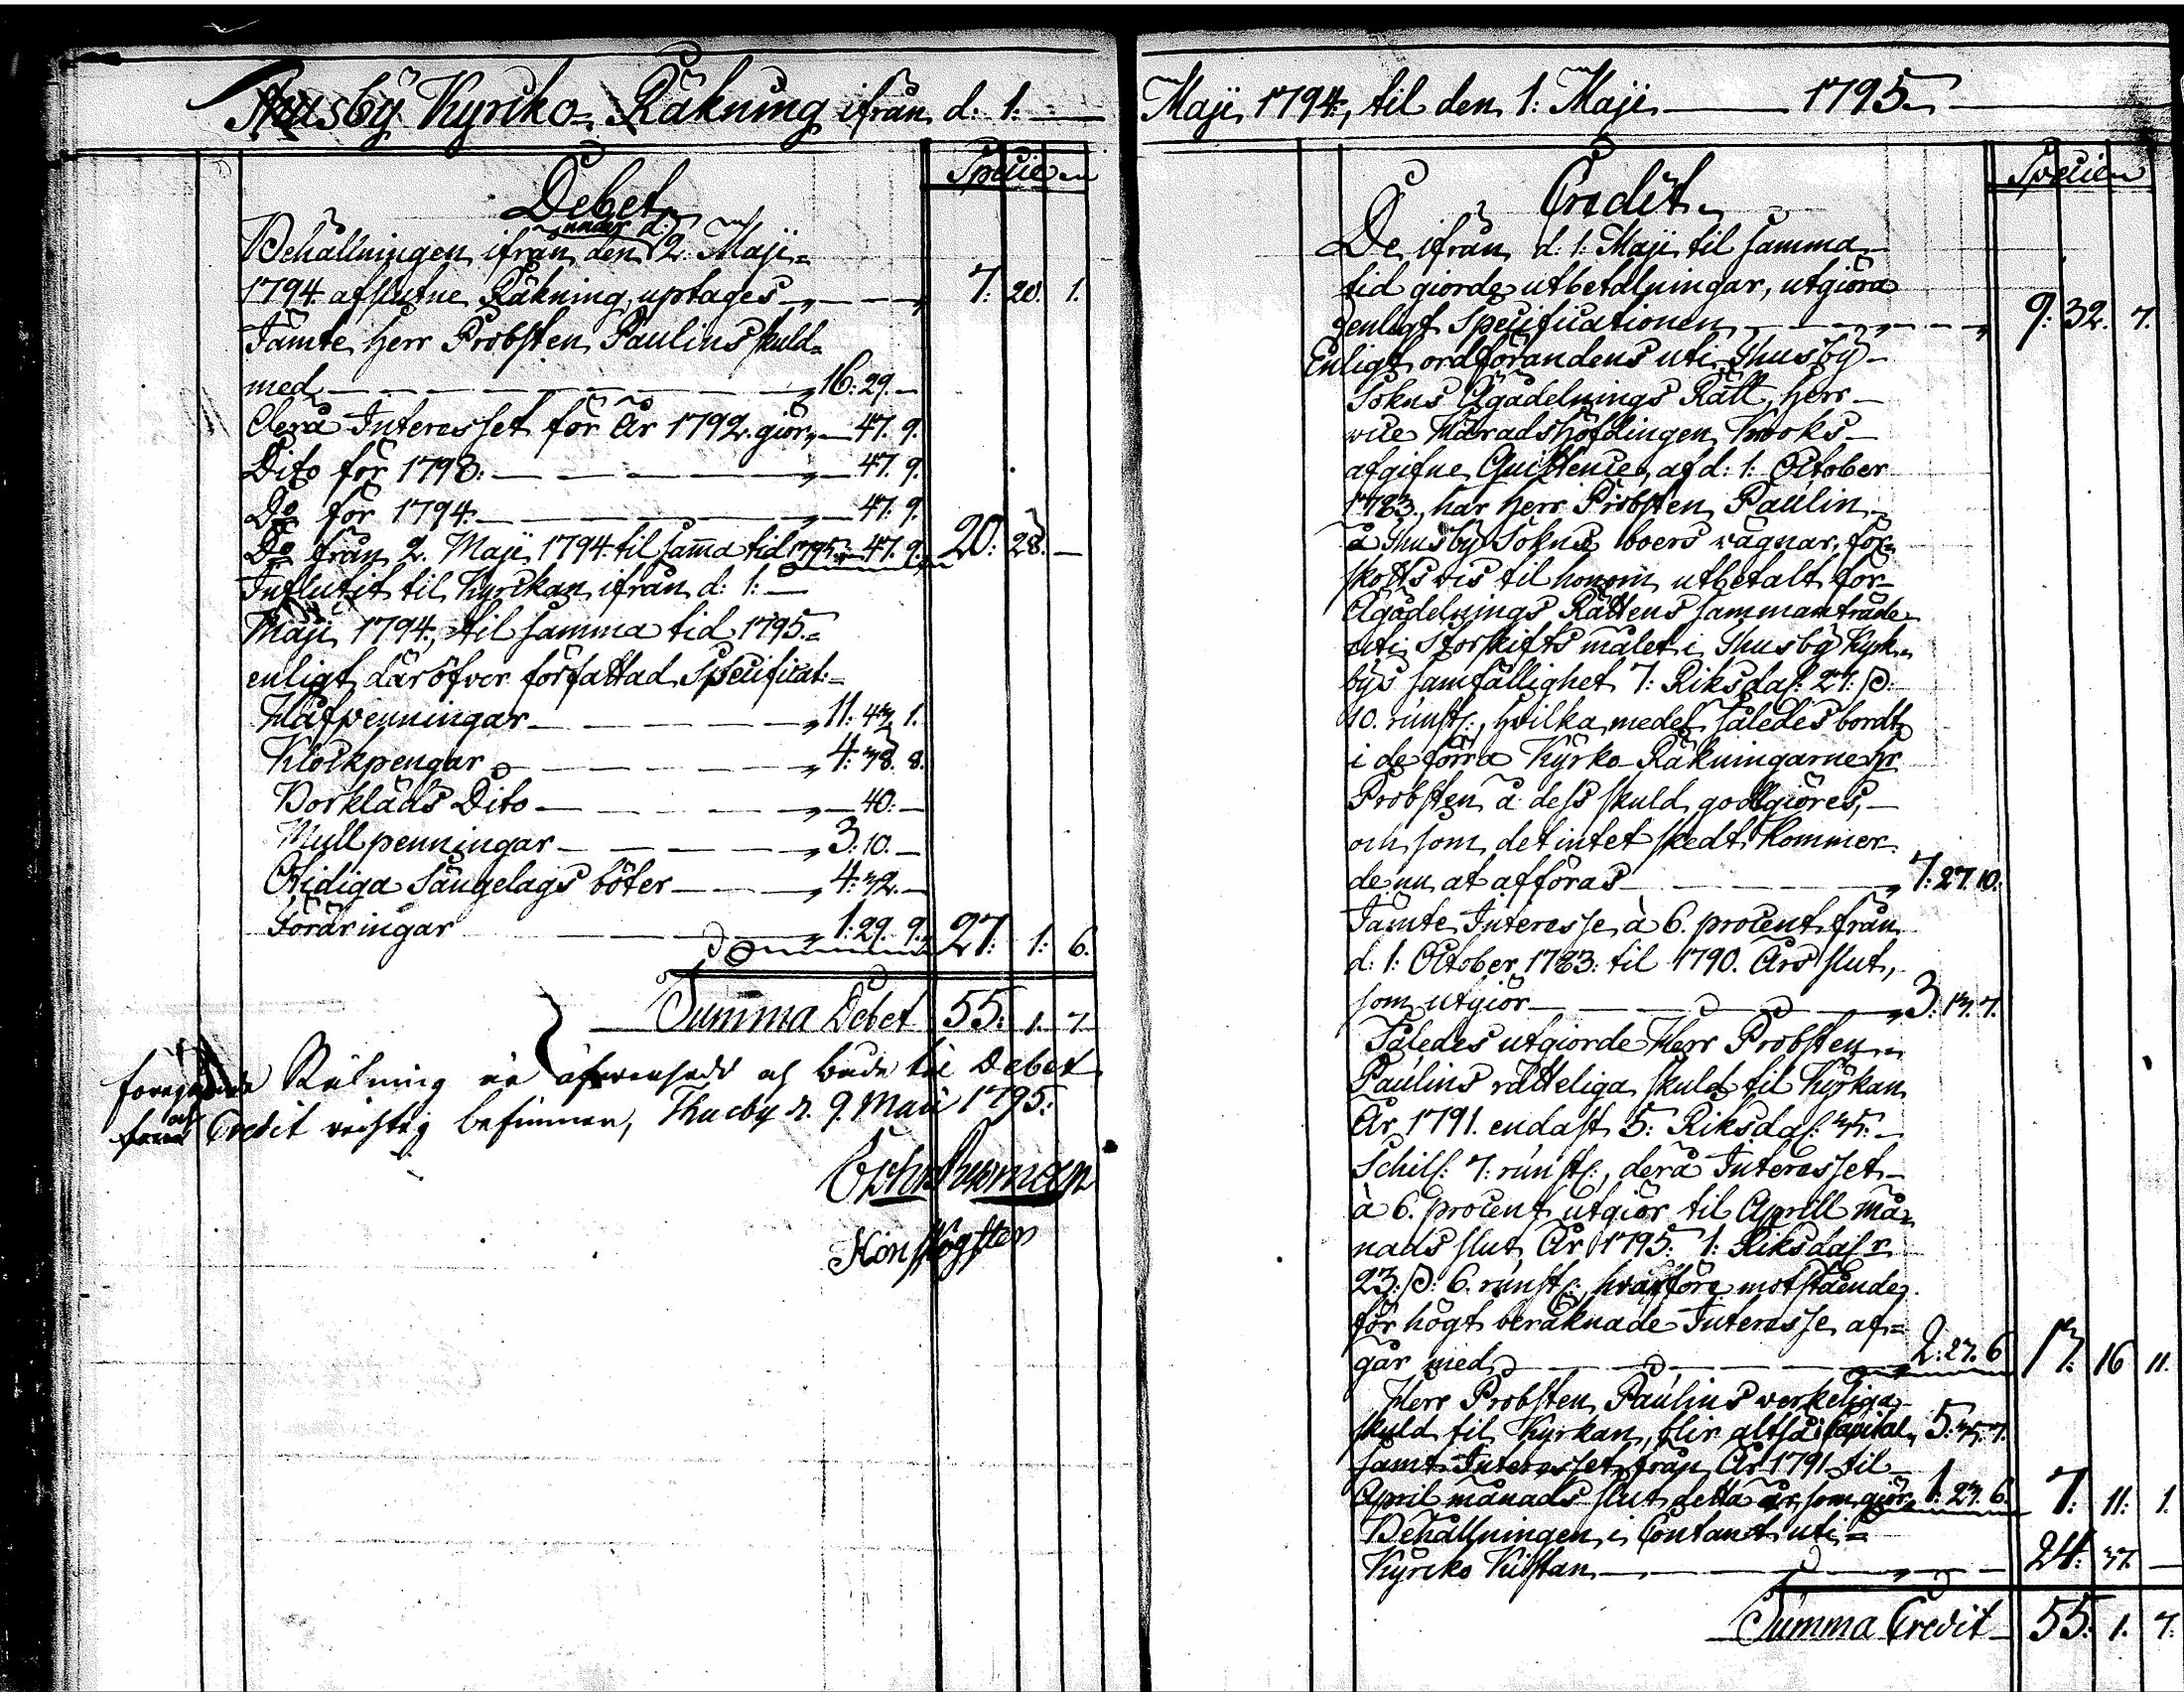 Thusbÿ Kyrcko- Räkning ifrån d: 1:
Debet
Specie
under d:
Behållningen ifrån den 2. Maji
1794. afslutne Räkning, uptages 7. 20. 1.
Jämte Herr Probsten Paulins skuld
med 16: 29.
derå Interesset för År 1792. giör 47. 9.
Dito för 1793: 47. 9.
Do för 1794. 47. 9.
Do från 2. Maji 1794. til samma tid 1795. 47. 9. 20: 28.
Influtit til Kyrckan ifrån d: 1:
Maji 1794., til samma tid 1795.
enligt däröfver författad Specificat:
Håfpenningar 11: 43. 1.
Klockpengar 4: 38. 8.
Borkläds Dito 40:
Mullpenningar 3: 10.
Otidiga Sängelags böter 4: 32.
Föräringar 1: 29. 9. 27: 1: 6.
Summa Debet 55: 1. 7
Räkning är öfwersedd och både til Debet
och Credit richtig befunnen, Thusby d. 9. Maii 1795:
Maji 1794., til den 1: Maji 1795
Credit
Specie
De ifrån d: 1: Maji til samma
tid giorde utbetalningar, utgiöra
enligt Specificationen 9: 32. 7.
Enligt ordförandens uti Thusby
Sokns Ägodelnings Rätt, Herr
vice Häradshöfdingen Krooks
afgifne Quittence, af d: 1: October
1783., har Herr Probsten Paulin
å Thusby Sokne boers vägnar, för-
skotts vis til honom utbetalt för
Ägodelnings Rättens sammanträde
uti Storskifts målet i Thusby Kyrk-
bys samfällighet 7: Riksdal: 27: ß:
10. runst:, hvilka medel således bordt
i de förra Kyrko Räkningarne Hr
Probsten å dess skuld godtgiöres,
och som det intet skedt, kommer
de nu at afföras 7: 27. 10.
Jämte Interesse à 6. procent från
d: 1: October 1783: til 1790. Års slut,
som utgiör 3: 13. 7.
Således utgiorde Herr Probsten
Paulins rätteliga skuld til Kyrkan
År 1791. endast 5: Riksdal: 35.
Schill: 7: runst:, derå Interesset
à 6. procent utgiör til Aprill må-
nads slut År 1795: 1: Riksdal r
23: ß: 6. runst:, hvarföre motstående
för högt beräknade Interesse af-
går med 2: 23. 6 13: 16 11.
Herr Probsten Paulins verkeliga
skuld til Kyrkan, blir altså i Capital 5: 35. 7.
samt Interesset från År 1791 til
April månads slut detta år, som giör 1: 23. 6. 7: 11: 1.
Behållningen i Contant uti
Kyrcko Kistan 24: 37.
Summa Credit 55: 1. 7.